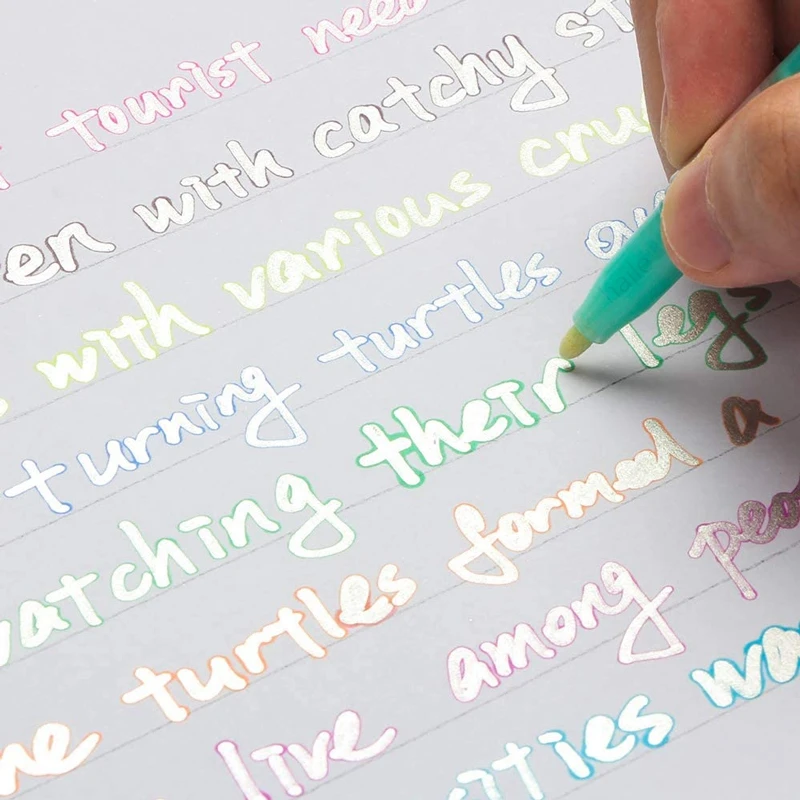 tourist need
en with catchy st
s with various crus
turning turtles
watching their legs
me turtles formed a
live among peo
ities wa